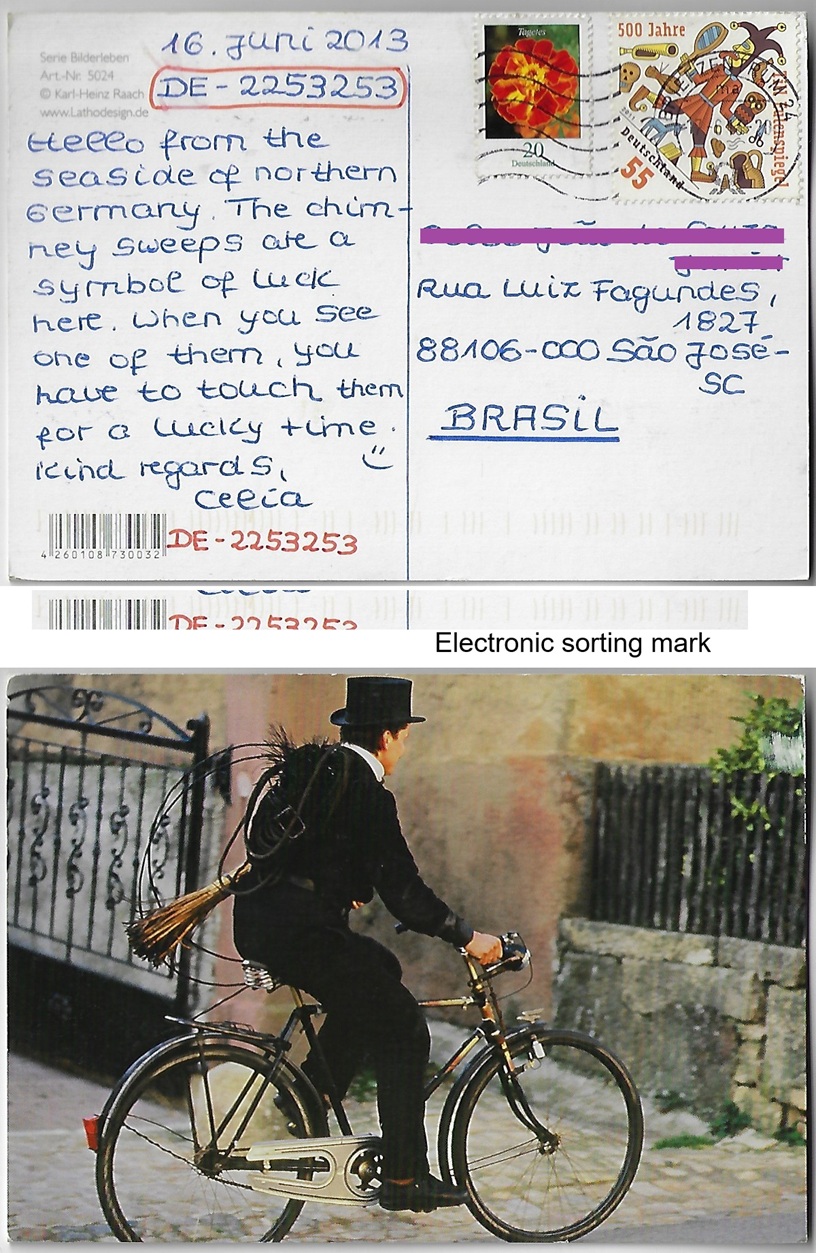 Serie Bilderleben
Art.-Nr. 5024
© Karl-Heinz Raach
www.Lathodesign.de
16. Juni 2013
DE-2253253
Hello from the
seaside of northern
Germany. The chim-
ney sweeps are a
symbol of luck
here. When you see
one of them, you
have to touch them
for a lucky time.
Kind regards,
Celia
4 260108 730032
DE-2253253
Tagetes
20
Deutschland
500 Jahre
Eulenspiegel
2011
Deutschland
55
Rua Luiz Fagundes,
1827
88106-000 São José-
SC
BRASIL
DE-2253253
Electronic sorting mark